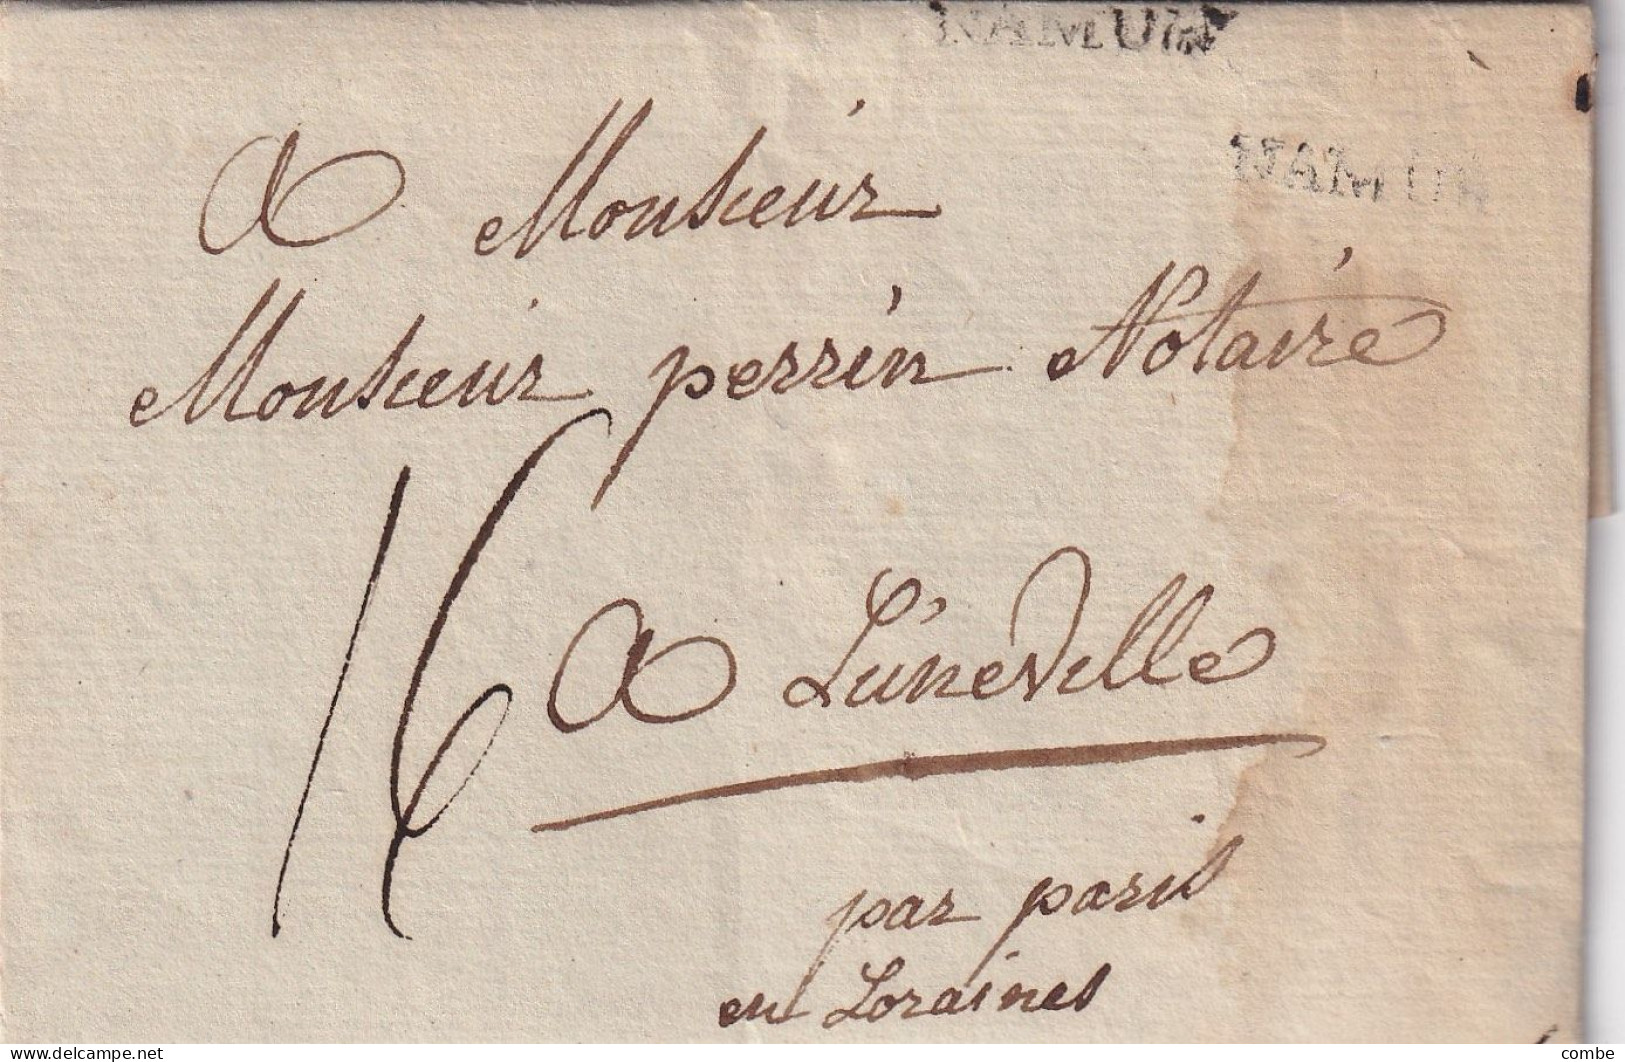 NAMUR
NAMUR
A Monsieur
Monsieur perrin Notaire
16
A Lúneville
par paris
en Loraines
delcampe.net
combe